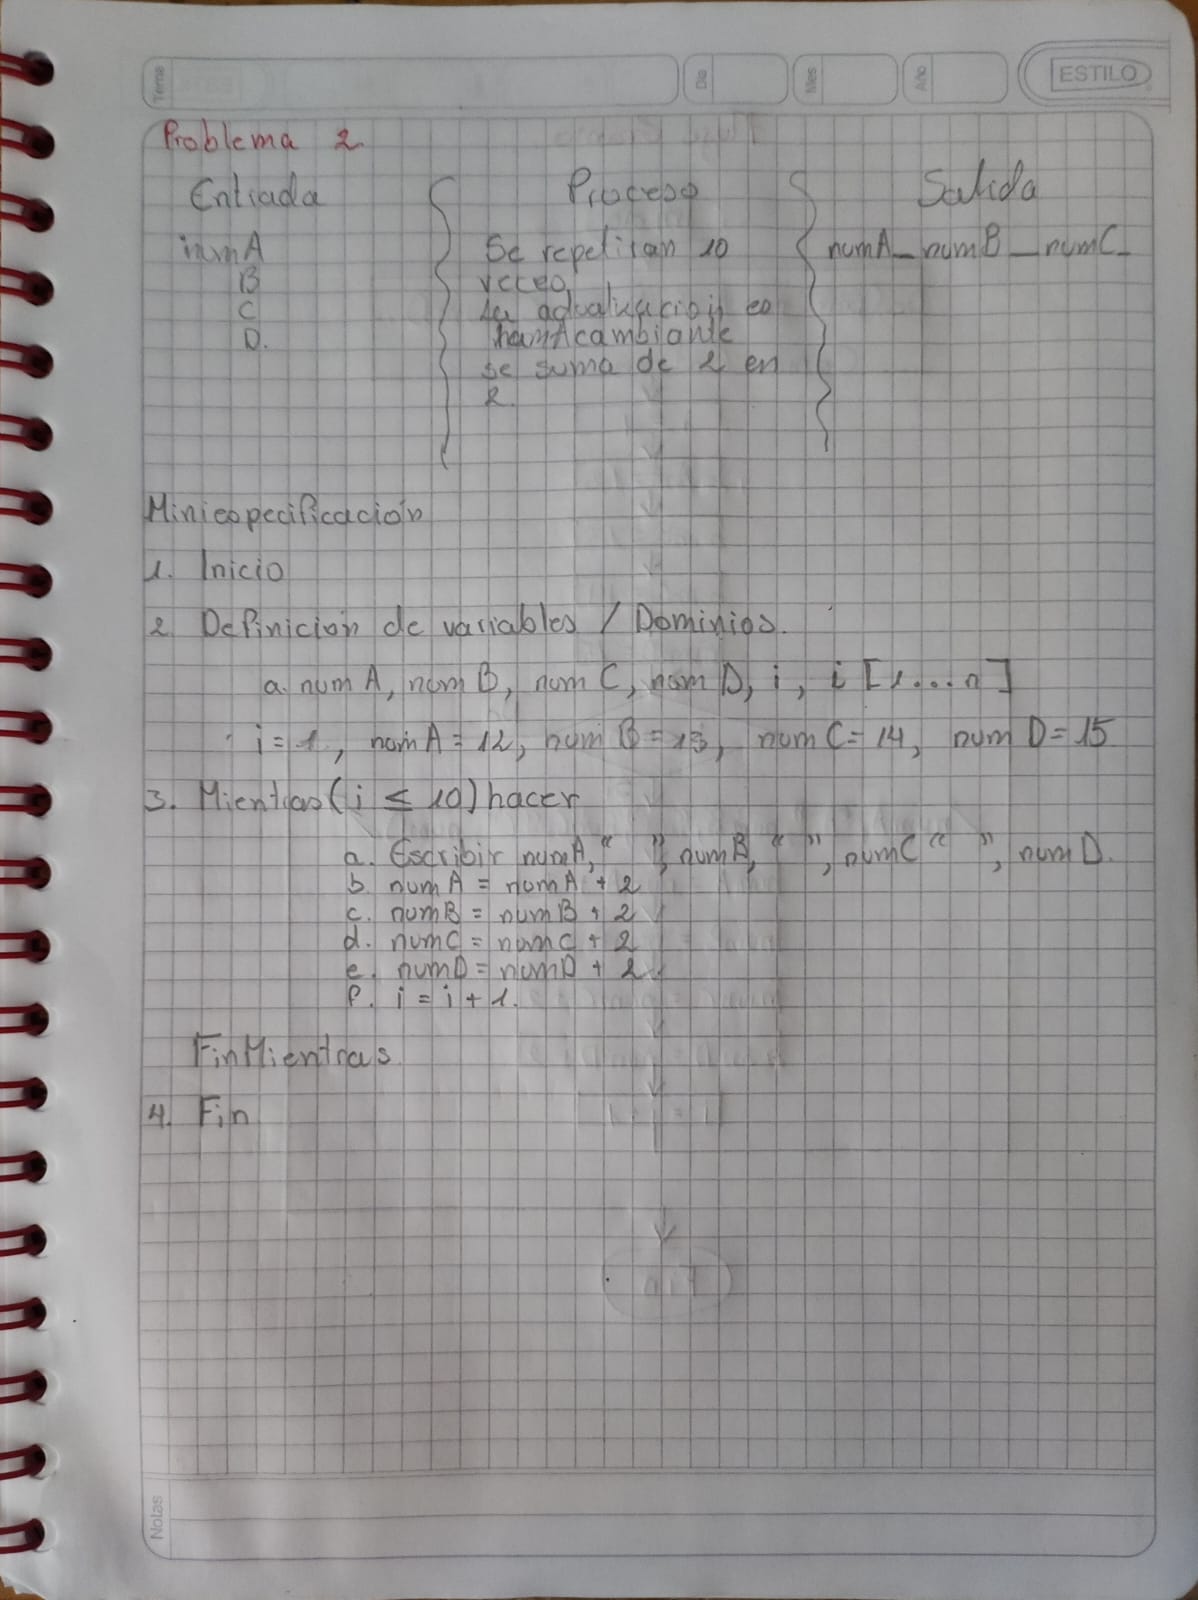 Tema
Dia
Mes
Año
ESTILO
Problema 2.
Entrada
Proceso
Salida
numA
B
C
D.
Se repetiran 10
veces
La actualización es
cambiante
se suma de 2 en
2.
numA_numB_numC_
Miniespecificación
1. Inicio
2. Definición de variables / Dominios.
a. numA, numB, numC, numD, i, i [1...n]
i=1, numA=12, numB=13, numC=14, numD=15
3. Mientras (i ≤ 10) hacer
a. Escribir numA, “ ”, numB, “ ”, numC “ ”, numD.
b. numA = numA + 2
c. numB = numB + 2
d. numC = numC + 2
e. numD = numD + 2
f. i = i + 1.
FinMientras
4. Fin
Notas